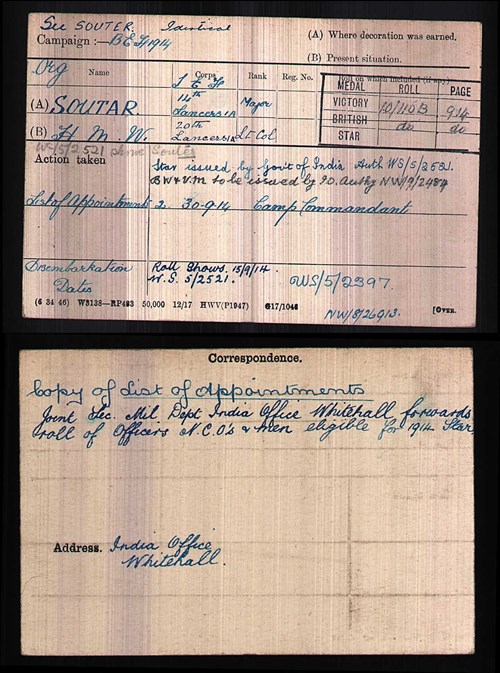 See SOUTER. Identical
Campaign :— B E F 1914
(A) Where decoration was earned.
(B) Present situation.
Org Name Corps Rank Reg. No. Roll on which included (if any)
I E F
MEDAL ROLL PAGE
(A) SOUTAR. 14th Lancers IA Major
VICTORY 10/110B 914
BRITISH do do
STAR
(B) H M W 20th Lancers IA Lt Col
W/S/5/2521 show Souter
Action taken Star issued by Govt of India Auth WS/5/2521.
BW & V.M to be issued by IO. Authy NW/9/2484
List of Appointments 2. 30-9-14 Camp Commandant
Disembarkation Dates Roll Shows. 15/9/14.
W.S. 5/2521.
WS/5/2397.
(6 34 46) W3138—RP493 50,000 12/17 HWV(P1947) G17/1046
NW/8/26913.
[OVER.
Correspondence.
Copy of List of Appointments
Joint Sec. Mil. Dept India Office Whitehall forwards
roll of Officers N.C.O's & men eligible for 1914 Star.
Address. India Office
Whitehall.